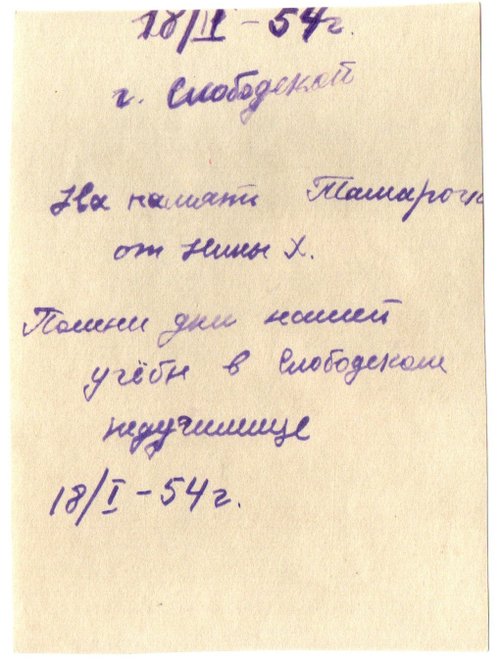 18/II - 54 г.
г. Слободской
На память Тамарочк
от Нины Х.
Помни дни нашей
учёбы в Слободском
педучилище
18/I - 54 г.